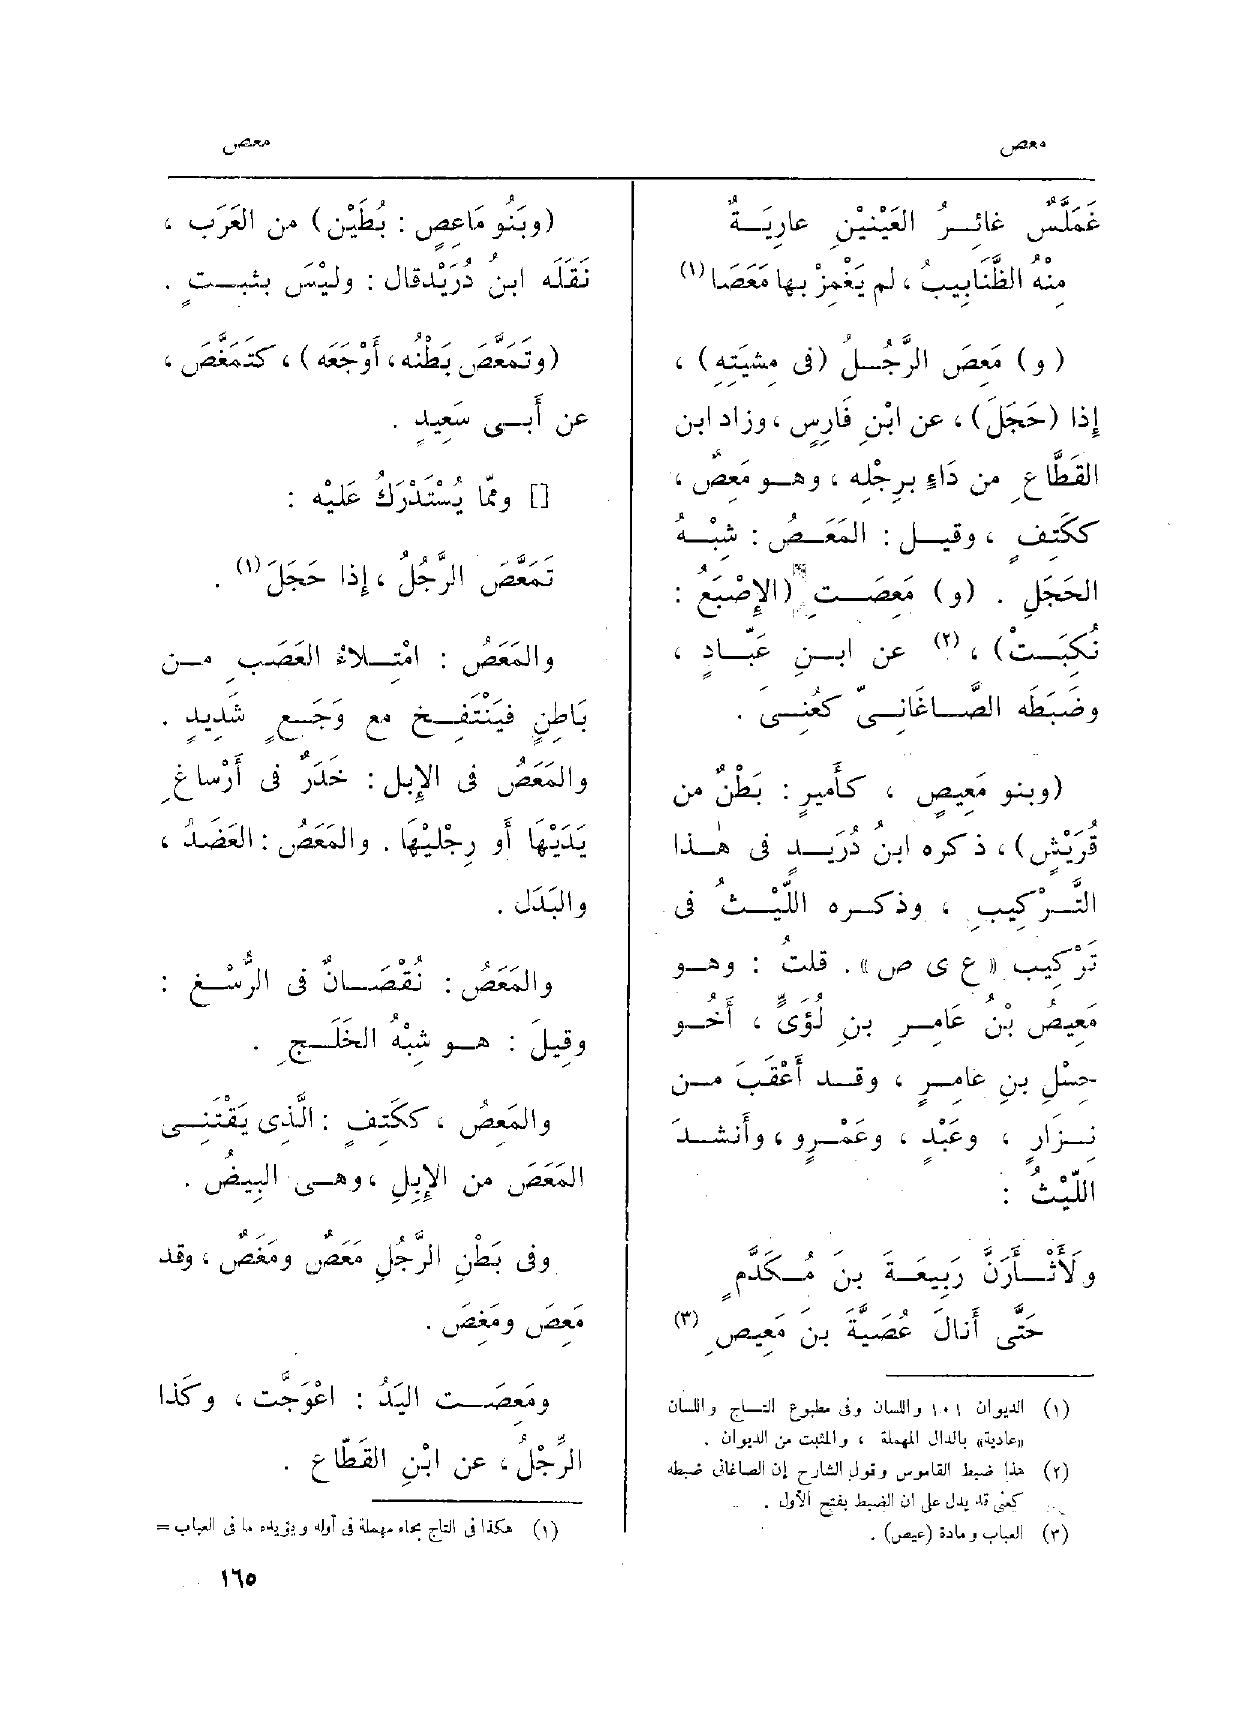 معص
معص
غَمَلَّسٌ غائــرُ العَيْنَيْنِ عارِيَــةٌ
مِنْهُ الظَّنابِيبُ ، لم يَغْمِزْ بها مَعَصَا (١)
( و ) مَعِصَ الرَّجُــلُ (فى مِشْيَتِهِ) ،
إذا (حَجَلَ) ، عن ابْنِ فَارِسٍ ، وزاد ابن
القَطَّاعِ من دَاءٍ بِرِجْلِه ، وهــو مَعِصٌ ،
ككَتِفٍ ، وقيــل : المَعَــصُ : شِبْــهُ
الحَجَلِ . (و) مَعِصَــتِ (الإِصْبَعُ :
نُكِبَــتْ) ، (٢) عن ابــنِ عَبَّــادٍ ،
وضَبَطَه الصَّــاغَانِــىّ كعُنِــىَ .
(وبنو مَعِيصٍ ، كأَمِيرٍ : بَطْنٌ من
قُرَيْشٍ) ، ذكره ابنُ دُرَيــدٍ فى هٰــذا
التَّــرْكِيبِ ، وذكــره اللَّيْــثُ فى
تَرْكِيبِ «ع ى ص» . قلتُ : وهــو
مَعِيصُ بْنُ عَامِــرِ بنِ لُؤَىٍّ ، أَخُــو
حِسْلِ بنِ عامِــرٍ ، وقــد أَعْقَبَ مــن
نِــزَارٍ ، وعَبْدٍ ، وعَمْــرٍو ، وأَنشــدَ
اللَّيْثُ :
ولَأَثْــأَرَنَّ رَبِيعَــةَ بنَ مُــكَدَّمٍ
حَتَّى أَنالَ عُصَيَّةَ بنَ مَعِيصِ (٣)
(١) الديوان ١٠١ واللسان وفى مطبوع التــاج واللسان
«عادية» بالدال المهملة ، والمثبت من الديوان .
(٢) هذا ضبط القاموس وقول الشارح إن الصاغانى ضبطه
كعنى قد يدل على ان الضبط بفتح الأول .
(٣) العباب ومادة (عيص) .
(وبَنُو مَاعِصٍ : بُطَيْن) من العَرَب ،
نَقَلَه ابنُ دُرَيْدٍ قال : ولَيْسَ بثَبــتٍ .
(وتَمَعَّصَ بَطْنُه ، أَوْجَعَه) ، كتَمَغَّصَ ،
عن أَبــى سَعِيدٍ .
[] ومّما يُسْتَدْرَكُ عَلَيْه :
تَمَعَّصَ الرَّجُلُ ، إذا حَجَلَ (١) .
والمَعَصُ : امْتِــلاءُ العَصَبِ مــن
بَاطِنٍ فيَنْتَفِــخ مع وَجَــعٍ شَدِيدٍ .
والمَعَصُ فى الإِبِل : خَدَرٌ فى أَرْساغِ
يَدَيْهَا أو رِجْلَيْهَا . والمَعَصُ : العَضَدُ ،
والبَدَل .
والمَعَصُ : نُقْصَــانٌ فى الرُّسْــغِ :
وقِيلَ : هــو شِبْهُ الخَلَــجِ .
والمَعِصُ ، ككَتِفٍ : الَّذِى يَقْتَنِــى
المَعَصَ من الإِبِلِ ، وهــى البِيضُ .
وفى بَطْنِ الرَّجُلِ مَعَصٌ ومَغَصٌ ، وقد
مَعِصَ ومَغِصَ .
ومَعِصَــت اليَدُ : اعْوَجَّت ، وكَذا
الرِّجْلُ ، عن ابْنِ القَطَّاعِ .
(١) هكذا فى التاج بحاء مهملة فى أوله ويؤيده ما فى العباب =
١٦٥